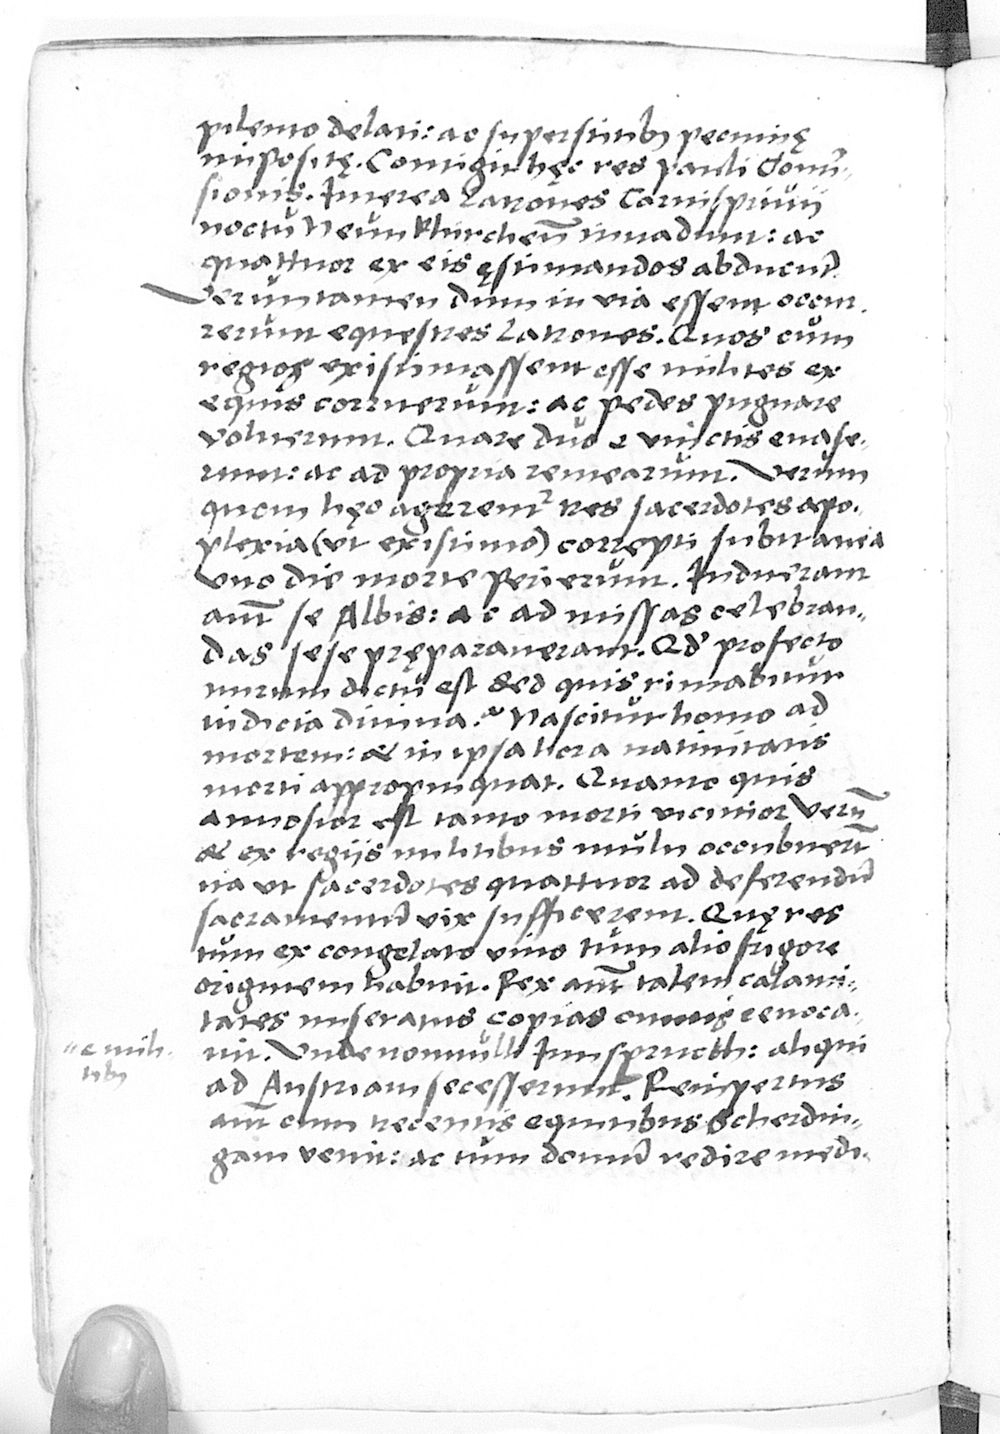 pilento delati: ac superstitibꝫ pecunię
impositę. Contigit hęc res Pauli Conuͦ-
sionis. Interea Latrones Carnispriuii
noctu Neunkhirchen̄ inuadunt: ac
quattuor ex eis ęstimandos abducunt̉
Veruntamen dum in via essent occur-
rerunt equestres Latrones. Quos cum
regios existimassent esse milites ex
equis corruerunt: ac pedes pugnare
voluerunt. Quare duo e vinctis euase-
runt: ac ad propria remearunt. Verum
quom hęc agerent᷑ tres sacerdotes apo-
plexia (vt existimo) correpti subitanea
vno die morte perierunt. Induerant
aūt se Albis: ac ad missas celebran-
das sese pręparauerant. Qd̉ profecto
mirum dictū est sed quis rimabitur
iudicia diuina? Nascitur homo ad
mortem: & in ipsa hora natiuitatis
morti appropinquat. Quanto quis
annosior est tanto morti vicinior Verū
& ex regiis militibus multi occubuerūt
ita vt sacerdotes quattuor ad deferendū
sacramentū vix sufficerent. Quę res
tum ex congelato vino tum alio frigore
originem habuit. Rex aūt talem calami-
tates miseratus copias reuoca-
uit. Vnde nonnulli Innspruckh: aliqui
ad Austriam secesserunt. Reinspertus
aūt cum trecentis equitibus Scherdin-
gam venit: ac tum domū redire medi-
e mili-
tibꝫ